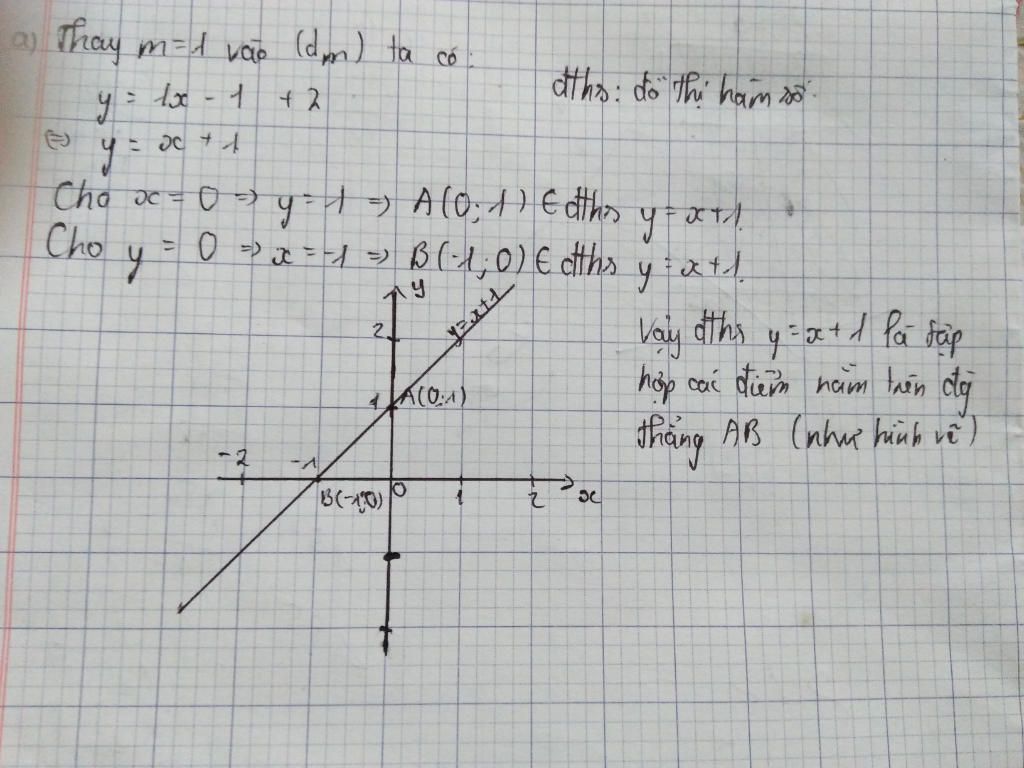 a) Thay m=1 vào (dm) ta có:
y = 1x - 1 + 2
đths: đồ thị hàm số.
⇔ y = x + 1
Cho x = 0 ⇒ y = 1 ⇒ A(0; 1) ∈ đths y = x+1.
Cho y = 0 ⇒ x = -1 ⇒ B(-1; 0) ∈ đths y = x+1.
y
y=x+1
2
1 A(0;1)
-2 -1
B(-1;0) 0 1 2 x
Vậy đths y = x+1 là tập
hợp các điểm nằm trên đg
thẳng AB (như hình vẽ)